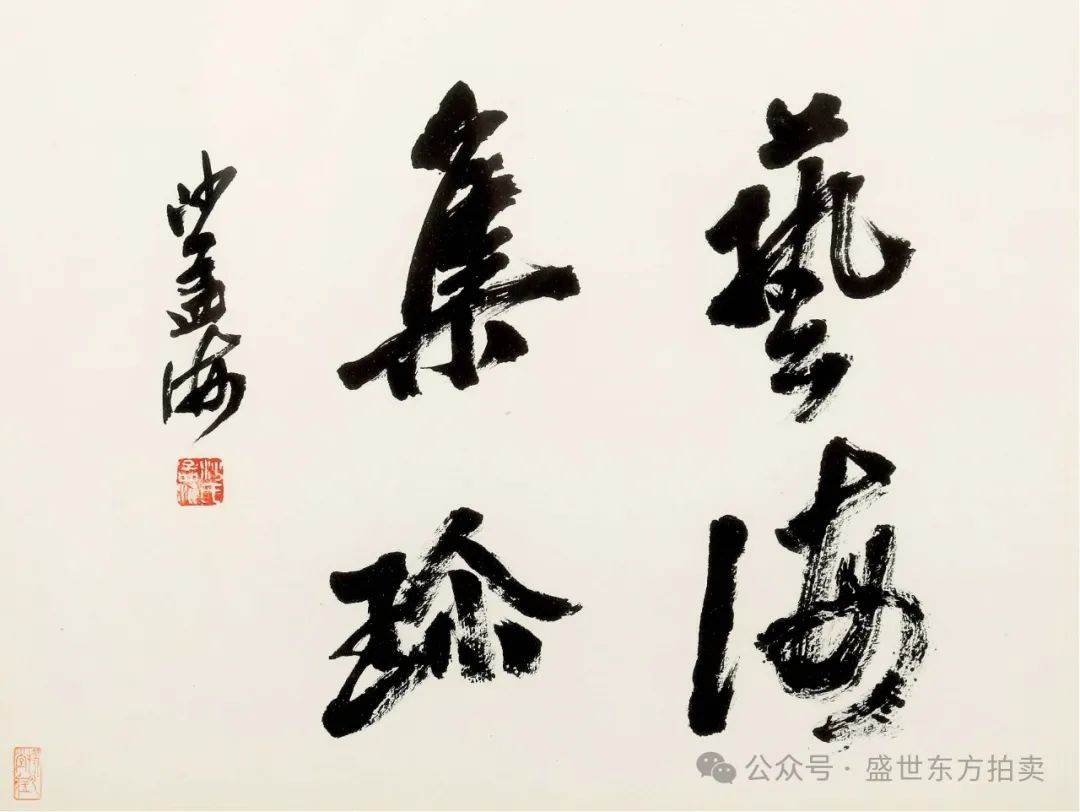 藝海
集珎
沙孟海
公众号 · 盛世东方拍卖